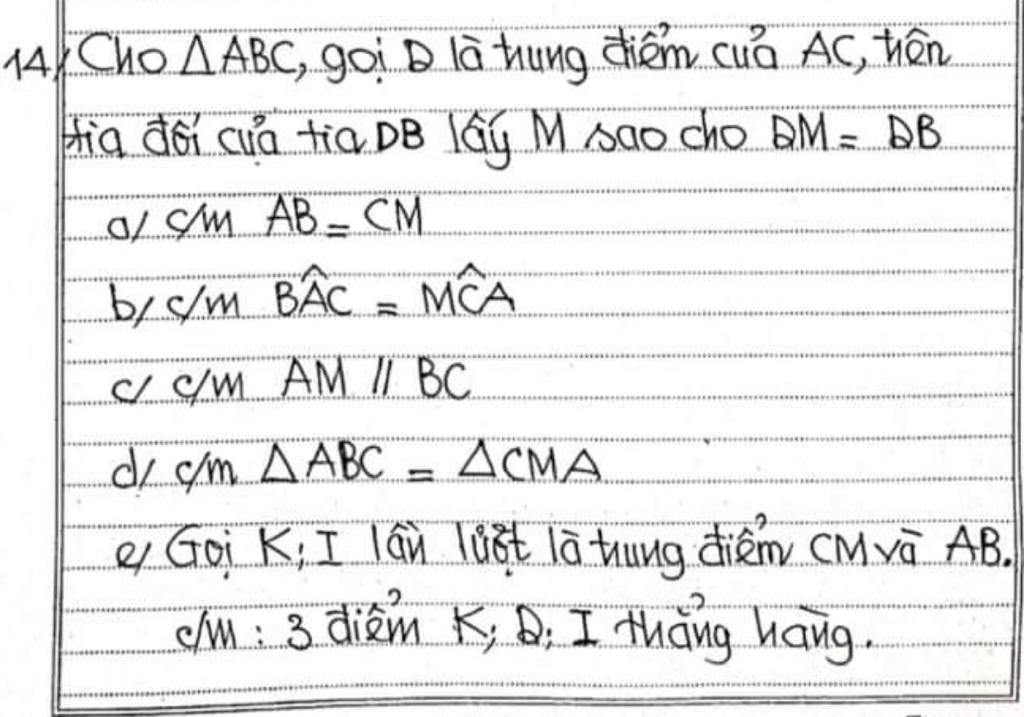 14/ Cho △ABC, gọi D là trung điểm của AC, trên
tia đối của tia DB lấy M sao cho DM = DB
a/ c/m AB = CM
b/ c/m BÂC = MĈA
c/ c/m AM // BC
d/ c/m △ABC = △CMA
e/ Gọi K; I lần lượt là trung điểm CM và AB.
c/m : 3 điểm K; D; I thẳng hàng.